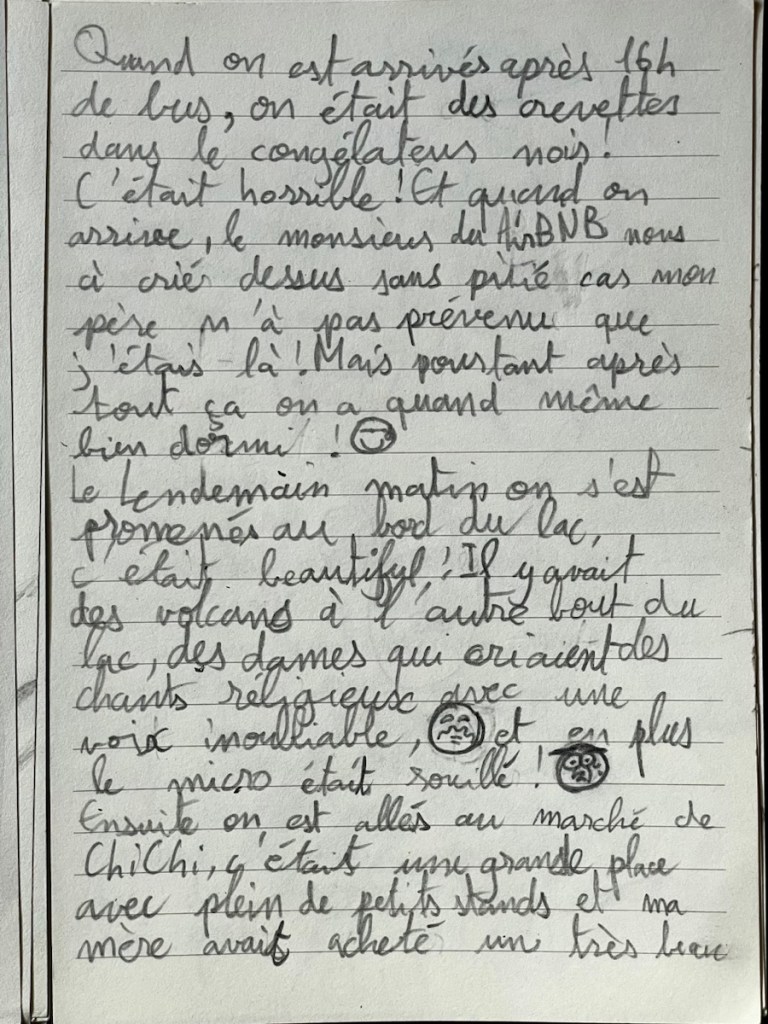 Quand on est arrivés après 16h
de bus, on était des crevettes
dans le congélateur noir !
C'était horrible ! Et quand on
arrive, le monsieur du AirBNB nous
à crié dessus sans pitié car mon
père n'à pas prévenu que
j'étais là ! Mais pourtant après
tout ça on a quand même
bien dormi !
Le lendemain matin on s'est
promenés au bord du lac,
c'était beautiful ! Il y avait
des volcans à l'autre bout du
lac, des dames qui criaient des
chants réligieux avec une
voix inoubliable, et en plus
le micro était rouillé !
Ensuite on est allés au marché de
ChiChi, c'était une grande place
avec plein de petits stands et ma
mère avait acheté un très beau